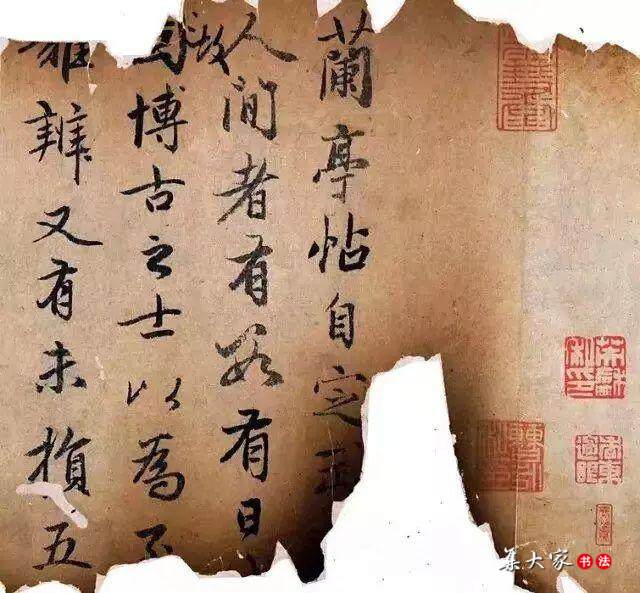 蘭亭帖自定
人間者有數有日
故博古之士以為
難辨又有未損五
集大家 书法